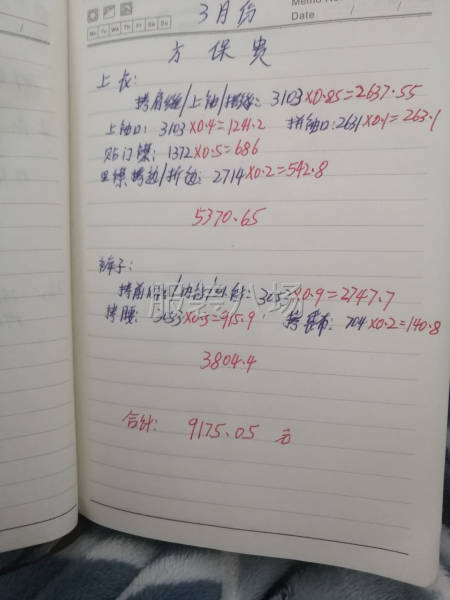 Memo No.
Mo Tu We Th Fr Sa Su
Date
3月份
方保贵
上衣:
拷肩缝/上袖/拼缝: 3103×0.85=2637.55
上袖口: 3103×0.4=1241.2 拼袖口: 2631×0.1=263.1
贴门襟: 1372×0.5=686
里襟拷边/折边: 2714×0.2=542.8
5370.65
裤子:
拷前 ×0.9=2747.7
拷腰: 3053×0.3=915.9 拷 布: 704×0.2=140.8
3804.4
合计: 9175.05 元
服装八场